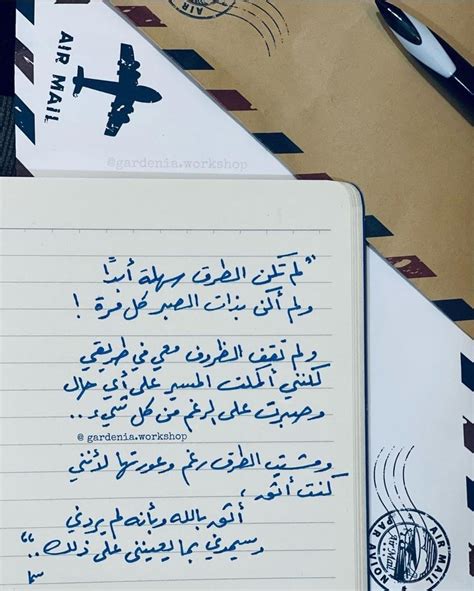 AIR MAIL
@gardenia.workshop
"لم تكن الطرق سهلة أبدًا
ولم أكن بذات الصبر كل مرة !
ولم تقف الظروف معي في طريقي
لكنني أكملت المسير على أي حال
وصبرت على الرغم من كل شيء ..
@gardenia.workshop
ومشيت الطرق رغم وعورتها لأنني
كنت أثق ،
أثق بالله وبأنه لم يردني
وسيمدني بما يعينني على ذلك .."
AIR MAIL
PAR AVION
Air Mail